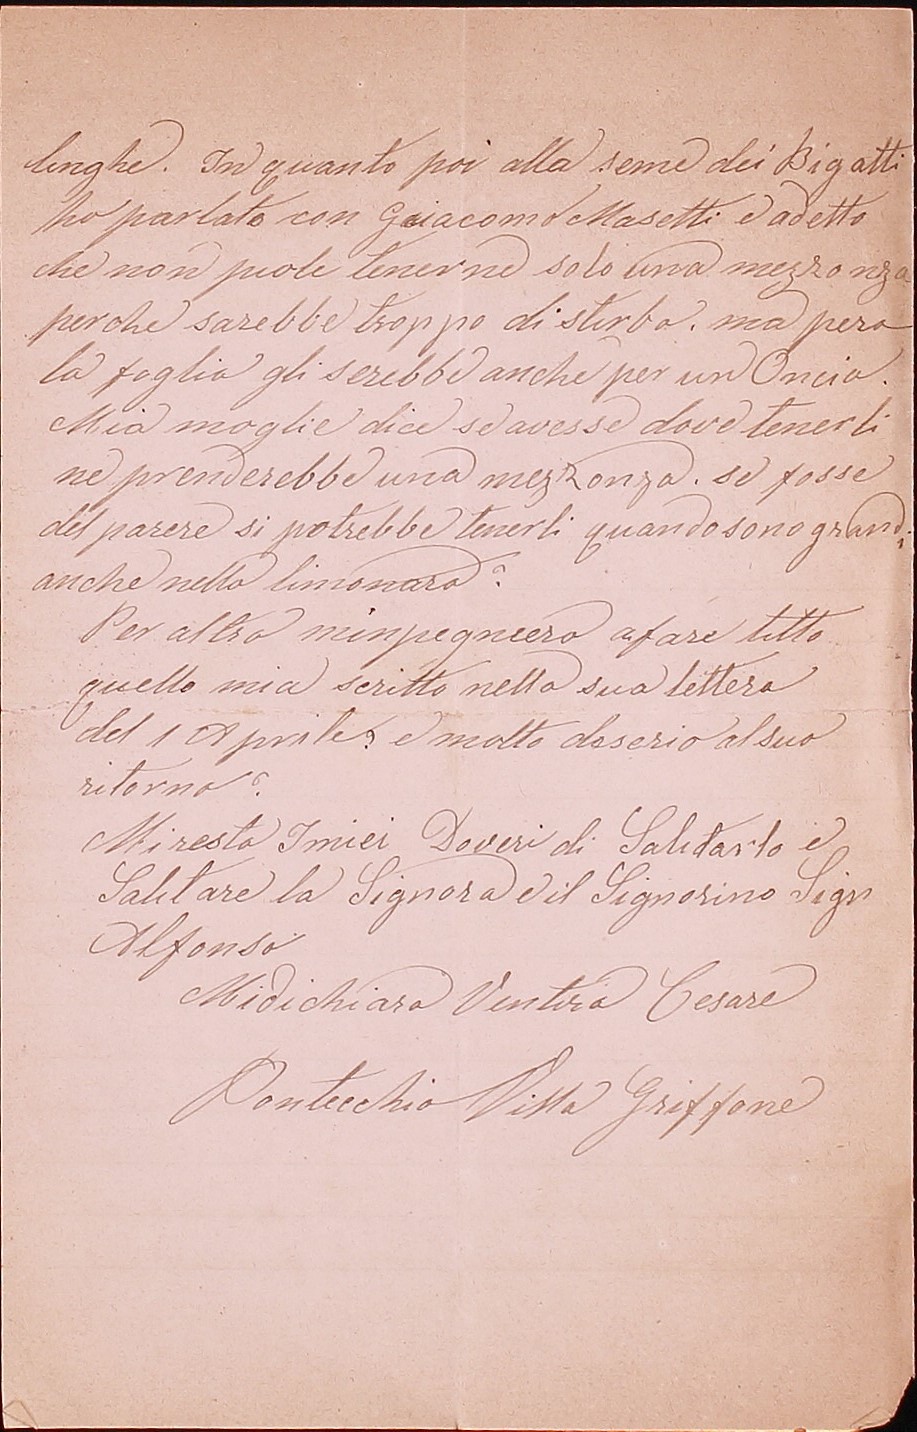 lunghe. In quanto poi alla seme dei Bigatti
ho parlato con Giacomo Masetti e adetto
che non puole tenerne solo una mezzonza
perche sarebbe troppo disturbo. ma pero
la foglia gli serebbe anche per un Oncia.
Mia moglie dice se avesse dove tenerli
ne prenderebbe una mezzonza. se fosse
del parere si potrebbe tenerli quando sono grandi
anche nella limonara.
Per altro minpegneero a fare tutto
quello mia scritto nella sua lettera
del 1 Aprile, e molto deserio al suo
ritorno.
Mi resta I miei Doveri di Salutarlo e
Salutare la Signora e il Signorino Sign
Alfonso
Midichiaro Ventura Cesare
Pontecchio Villa Griffone